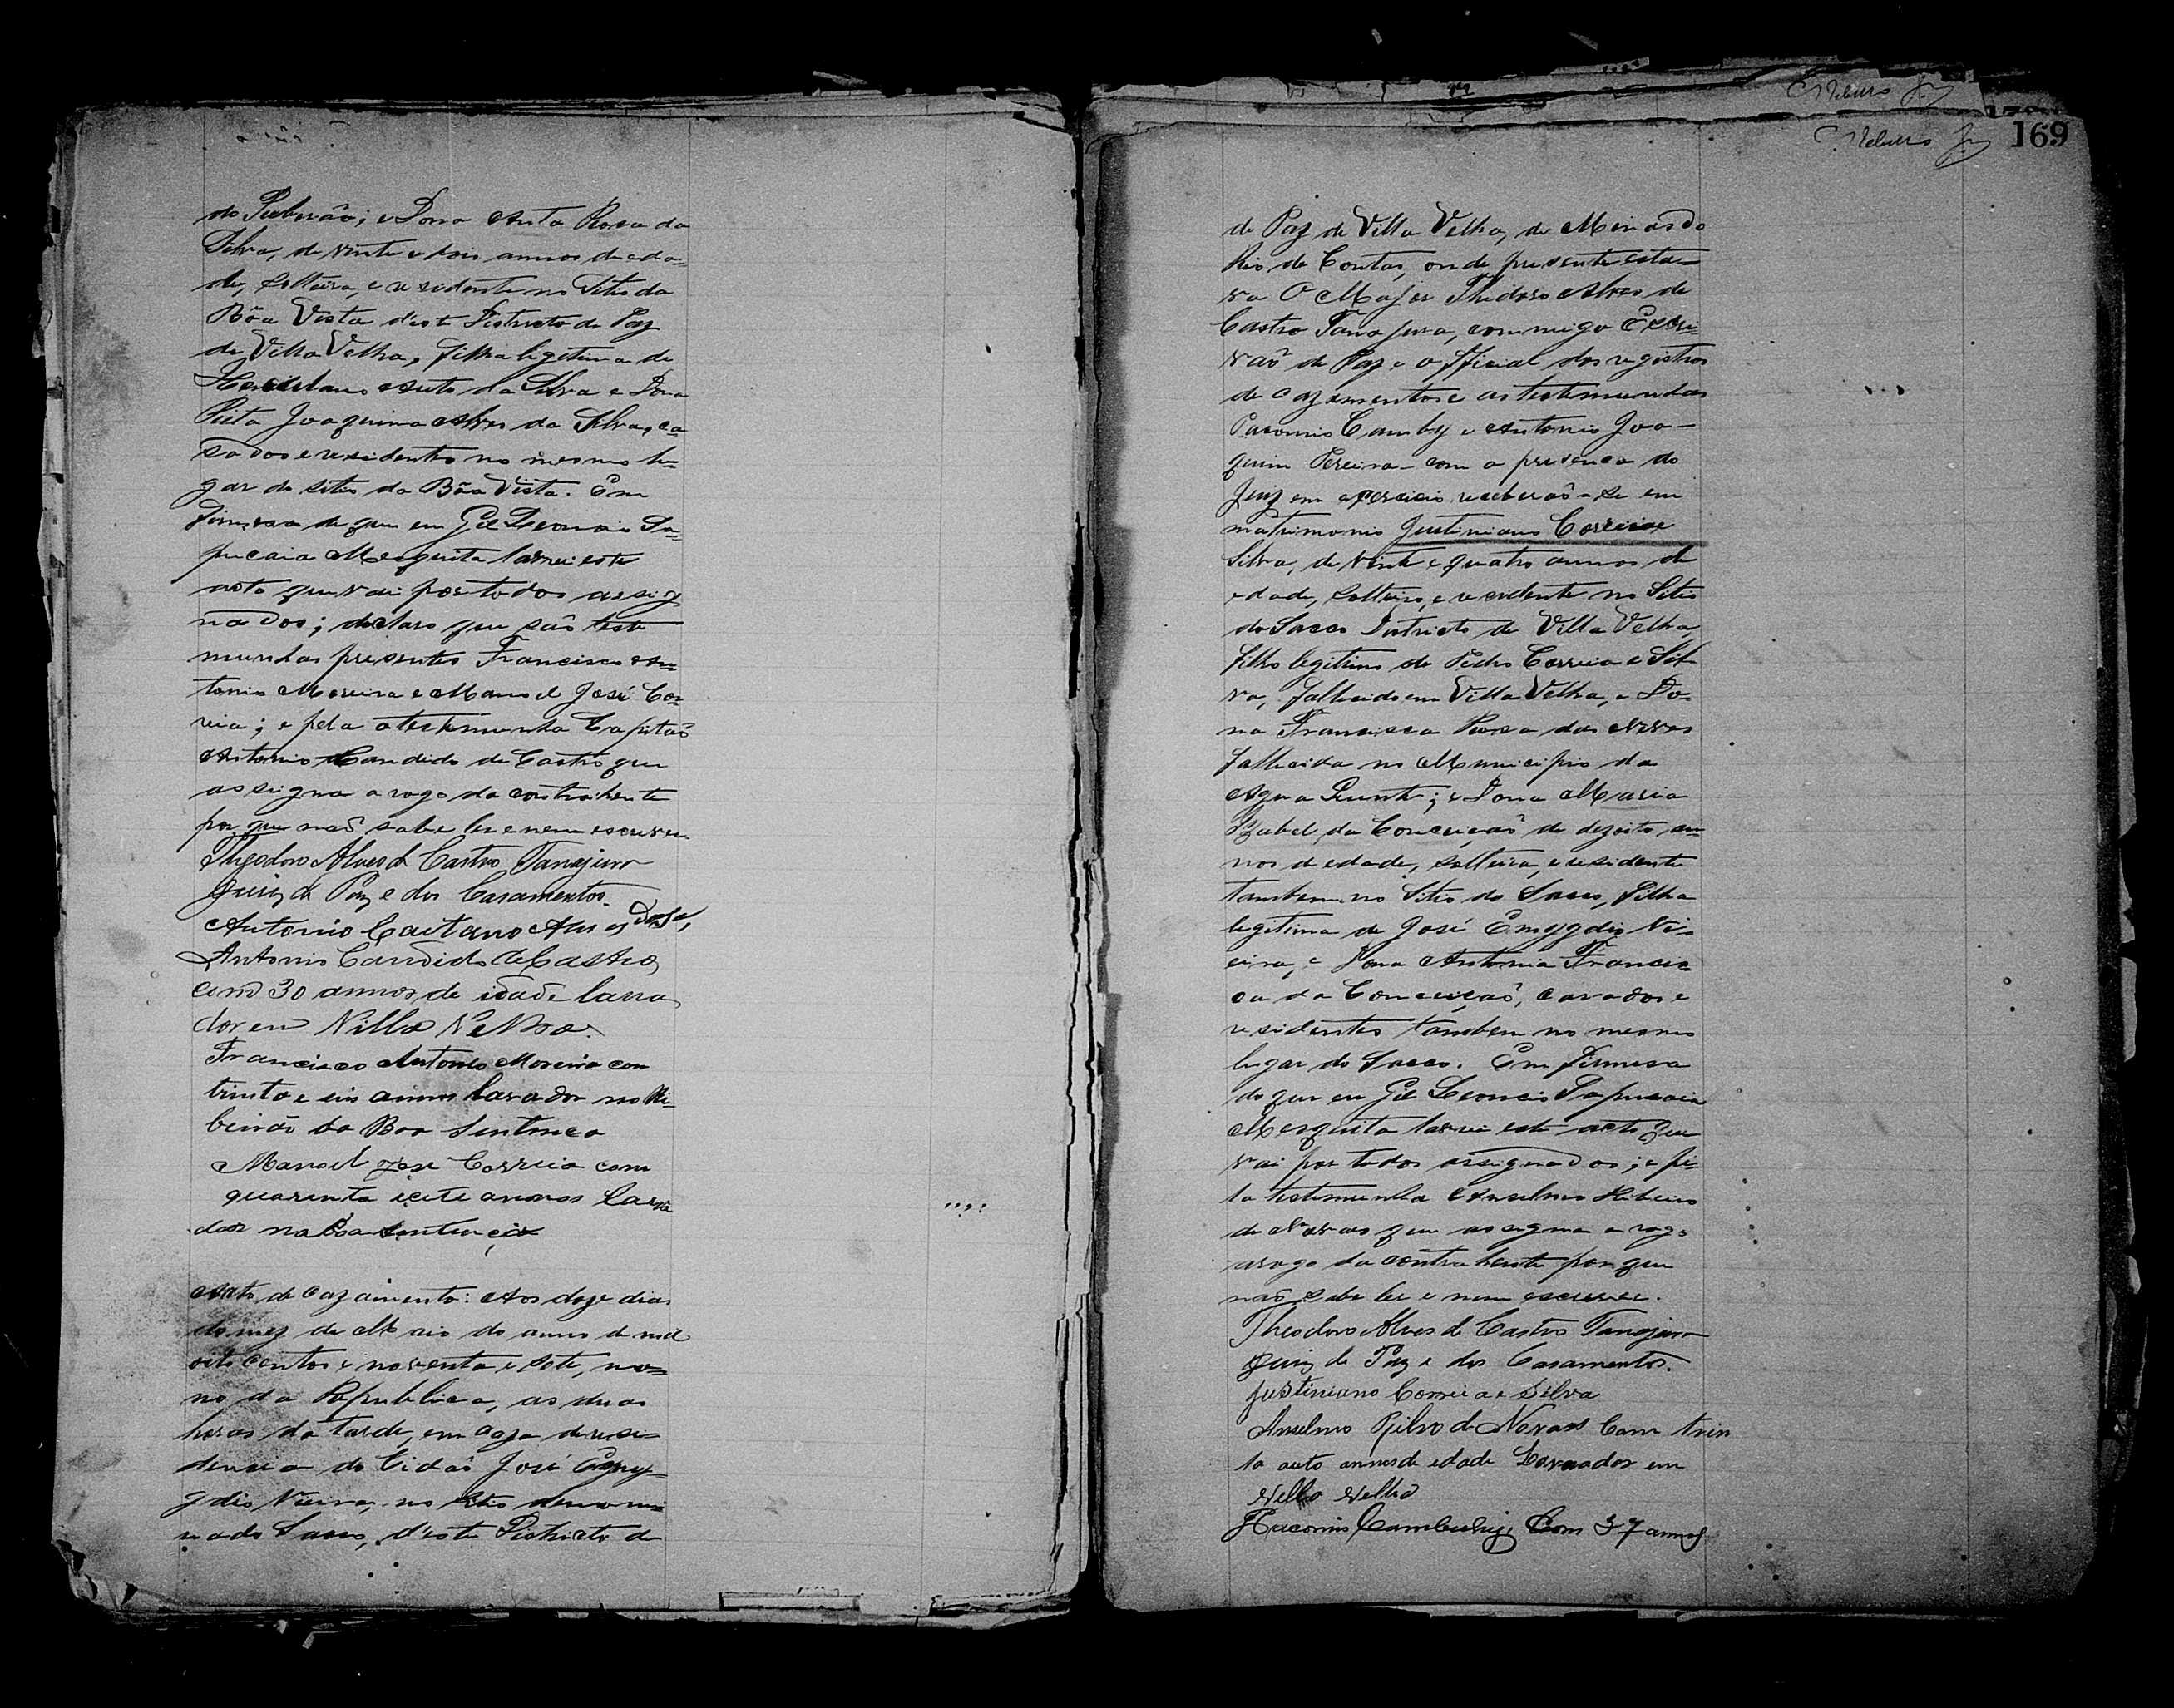 do Ribeirão; e Dona Anta Rosa da
Silva, de vinte e dois annos de eda-
de, solteira, e residente no Sitio da
Bôa Vista d'este Districto de Paz
de Villa Velha, filha ligitima de
Herculano Anto da Silva e Dona
Rita Joaquina Alves da Silva, ca-
sados e residentes no mesmo lu-
gar do sitio da Bôa Vista. Em
firmesa do que eu Gil Leoncio Sa-
pucaia Mesquita lavrei este
acto que vai por todos assig
nados; declaro que são teste
munhas presentes Francisco An-
tonio Moreira e Manoel José Cor-
reia; e pela a testemunha Capitaõ
Antonio Candido de Castro que
assigna a rogo da contrahente
por que naõ sabe ler e nem escrever.
Theodoro Alves de Castro Tanajura
Juiz de Paz e dos Casamentos.
Antonio Caetano Alves
Antonio Candido de Castro,
com 30 annos, de idade lavra
dor em Villa Velha.
Francisco Antonio Moreira com
trinta e seis annos lavrador no Ri-
beirão da Boa Sentença
Manoel José Correia com
quarenta i cete annos Lavra
dor na Boa Sentença
Acto de cazamento: Aos doze dias
do mez de Maio do anno de mil
oito centos e noventa e sete, no-
no da Republica, as duas
horas da tarde, em caza de resi-
dencia do Cidaõ José Emy-
gdio Vieira, no Sitio denomi
nado Sacco, d'este Districto de
Ribeiro Jr.
Ribeiro Jr. 169
de Paz de Villa Velha, de Minas do
Rio de Contas, onde presente esta-
va O Major Thedoro Alves de
Castro Tanajura, commigo Escri-
vaõ de Paz e official dos registros
de cazamentos e as testemunhas
Pacomio Camby e Antonio Joa-
quim Pereira - com a presença do
Juiz em exercicio receberaõ-se em
matrimonio Justiniano Correia e
Silva, de vinte e quatro annos de
edade, solteiro, e residente no Sitio
do Sacco Districto de Villa Velha,
filho legitimo de Pedro Correia e Sil-
va, fallecido em Villa Velha, e Do-
na Francisca Rosa das Neves
fallecida no Municipio da
Agua Quente; e Dona Maria
Izabel da Conceiçaõ de dezoito an-
nos de edade, solteira, e residente
tambem no Sitio do Sacco, filha
legitima de José Emygdio Vi-
eira, e Dona Antonia Francis-
ca da Conceiçaõ, casados e
residentes tambem no mesmo
lugar do Sacco. Em firmesa
do que eu Gil Leoncio Sapucaia
Mesquita lavrei este acto que
vai por todos assignados; e pe-
la testemunha Anselmo Ribeiro
de Novaes que assigna a rogo
arogo da contrahente por que
naõ sabe ler e nem escrever.
Theodoro Alves de Castro Tanajura
Juiz de Paz e dos Casamentos.
Justiniano Correia e Silva
Anselmo Ribro de Novaes Com trin
ta outo annos de edade Lavrador em
Villa Velha
Pacomio Com 37 annos